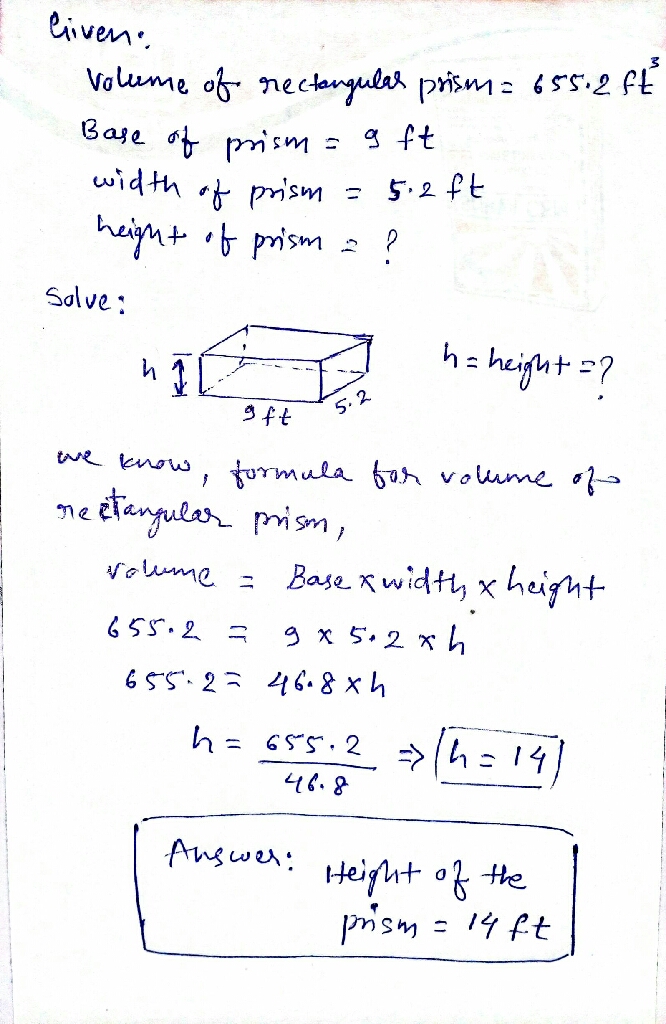 Given:
Volume of rectangular prism = 655.2 ft³
Base of prism = 9 ft
width of prism = 5.2 ft
height of prism = ?
Solve:
h
9 ft
5.2
h = height = ?
we know, formula for volume of
rectangular prism,
volume = Base x width x height
655.2 = 9 x 5.2 x h
655.2 = 46.8 x h
h = 655.2 / 46.8 ⇒ h = 14
Answer: Height of the
prism = 14 ft